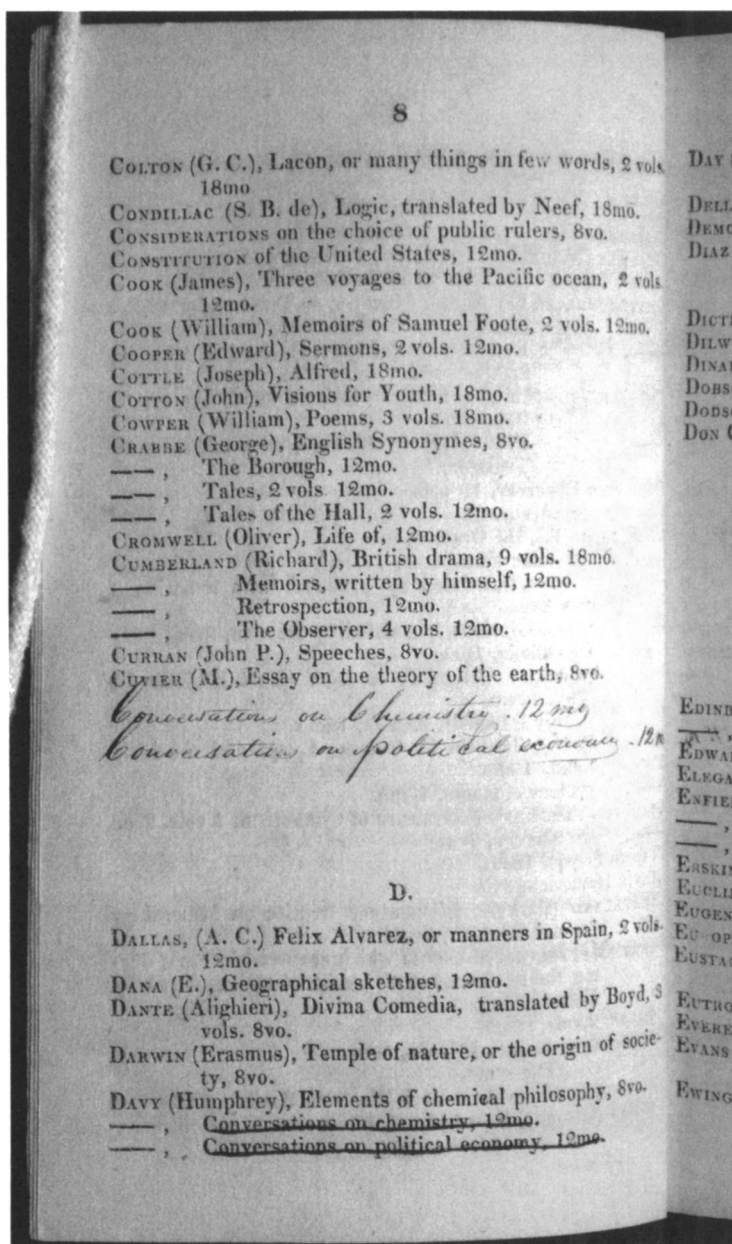 8
COLTON (G. C.), Lacon, or many things in few words, 2 vols.
18mo
CONDILLAC (S. B. de), Logic, translated by Neef, 18mo.
CONSIDERATIONS on the choice of public rulers, 8vo.
CONSTITUTION of the United States, 12mo.
COOK (James), Three voyages to the Pacific ocean, 2 vols
12mo.
COOK (William), Memoirs of Samuel Foote, 2 vols. 12mo.
COOPER (Edward), Sermons, 2 vols. 12mo.
COTTLE (Joseph), Alfred, 18mo.
COTTON (John), Visions for Youth, 18mo.
COWPER (William), Poems, 3 vols. 18mo.
CRABBE (George), English Synonymes, 8vo.
——, The Borough, 12mo.
——, Tales, 2 vols 12mo.
——, Tales of the Hall, 2 vols. 12mo.
CROMWELL (Oliver), Life of, 12mo.
CUMBERLAND (Richard), British drama, 9 vols. 18mo.
——, Memoirs, written by himself, 12mo.
——, Retrospection, 12mo.
——, The Observer, 4 vols. 12mo.
CURRAN (John P.), Speeches, 8vo.
CUVIER (M.), Essay on the theory of the earth, 8vo.
Conversations on Chemistry. 12mo
Conversations on political economy. 12m
D.
DALLAS, (A. C.) Felix Alvarez, or manners in Spain, 2 vols.
12mo.
DANA (E.), Geographical sketches, 12mo.
DANTE (Alighieri), Divina Comedia, translated by Boyd, 3
vols. 8vo.
DARWIN (Erasmus), Temple of nature, or the origin of socie-
ty, 8vo.
DAVY (Humphrey), Elements of chemical philosophy, 8vo.
——, Conversations on chemistry, 12mo.
——, Conversations on political economy, 12mo.
DAY
DELL
DEMO
DIAZ
DICTI
DILW
DINA
DOBS
DODS
DON
EDINB
EDWA
ELEGA
ENFIE
——,
——,
ERSKIN
EUCLI
EUGEN
EUSTA
EUTRO
EVERE
EVANS
EWING